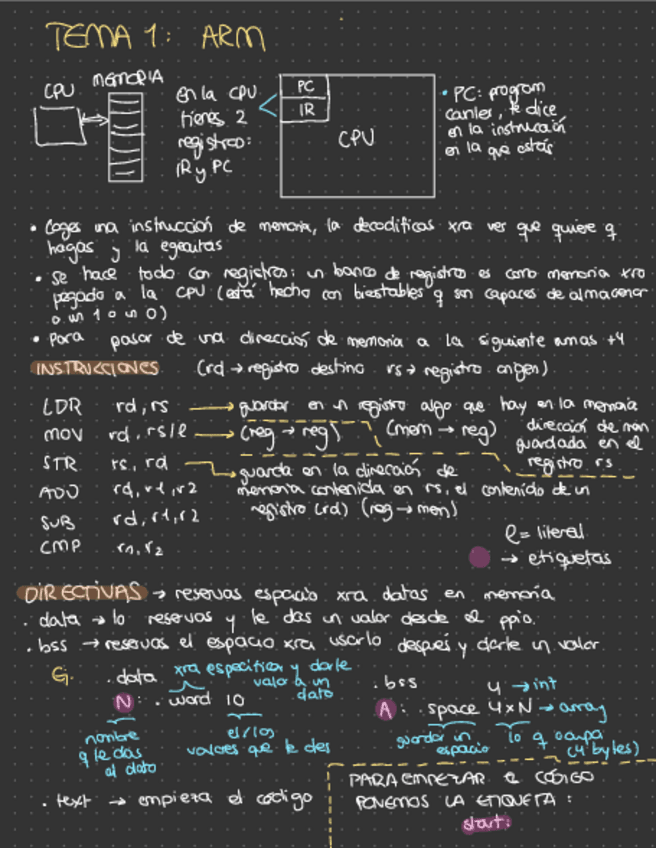 TEMA 1: ARM
CPU MEMORIA
en la CPU
tienes 2
registros:
IR y PC
PC
IR
CPU
• PC: program
canter, te dice
en la instrucción
en la que estás
• Coges una instrucción de memoria, la decodificas xra ver que quiere q
hagas y la ejecutas
• se hace todo con registros: un banco de registros es como memoria xro
pegado a la CPU (está hecho con biestables q son capaces de almacenar
o un 1 o un 0)
• Para pasar de una dirección de memoria a la siguiente sumas +4
INSTRUCCIONES (rd → registro destino rs → registro origen)
LDR rd, rs → guardar en un registro algo que hay en la memoria
MOV rd, rs/l → (reg → reg) (mem → reg) dirección de mem
guardada en el
registro rs
STR rs, rd → guarda en la dirección de
memoria contenida en rs, el contenido de un
registro (rd) (reg → mem)
ADD rd, r1, r2
SUB rd, r1, r2
CMP r1, r2
l = literal
→ etiquetas
DIRECTIVAS → reservas espacio xra datos en memoria
. data → lo reservas y le das un valor desde el ppio.
. bss → reservas el espacio xra usarlo después y darle un valor
Ej. .data xra especificar y darle
valor a un
dato
N: . word 10
nombre
q le das
al dato
el/los
valores que le des
. bss
4 → int
A: . space 4xN → array
guardar un
espacio
lo q ocupa
(4 bytes)
. text → empieza el código
PARA EMPEZAR EL CÓDIGO
PONEMOS LA ETIQUETA:
start: